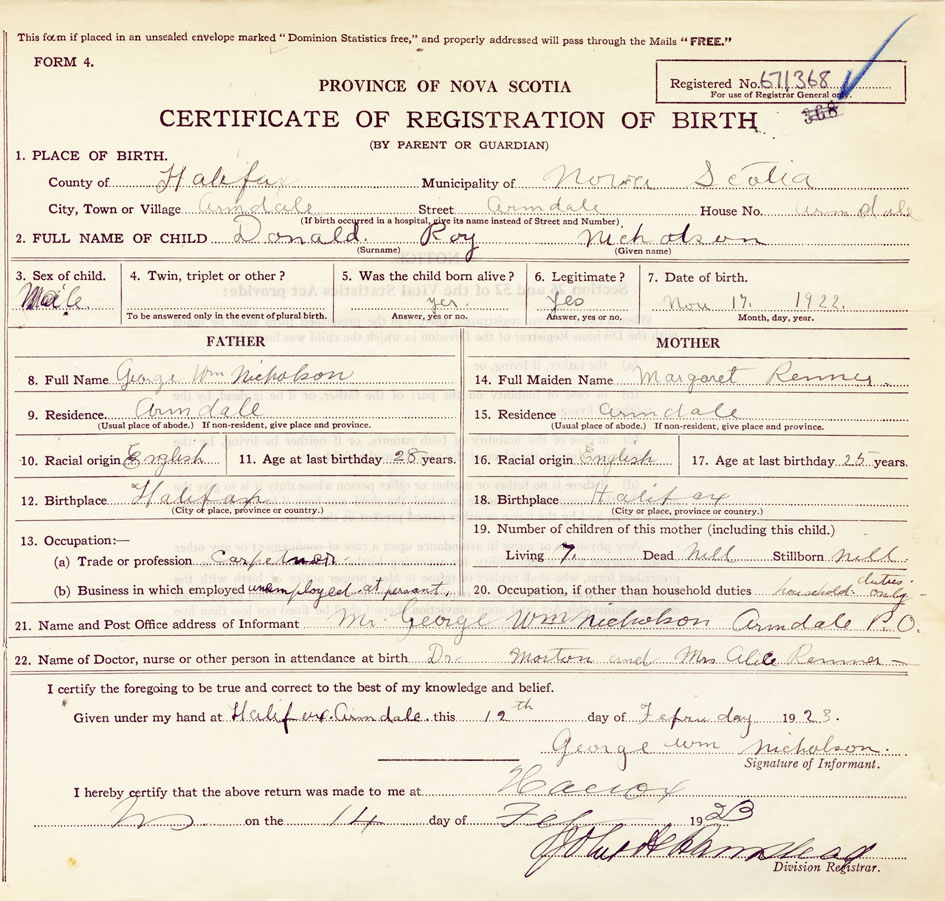 This form if placed in an unsealed envelope marked "Dominion Statistics free," and properly addressed will pass through the Mails "FREE."
FORM 4.
PROVINCE OF NOVA SCOTIA
Registered No. 671368
For use of Registrar General only.
368
CERTIFICATE OF REGISTRATION OF BIRTH
(BY PARENT OR GUARDIAN)
1. PLACE OF BIRTH.
County of Halifax Municipality of Nova Scotia
City, Town or Village Armdale Street Armdale House No. Armdale
(If birth occurred in a hospital, give its name instead of Street and Number)
2. FULL NAME OF CHILD Donald. Roy Nicholson
(Surname) (Given name)
3. Sex of child. 4. Twin, triplet or other? 5. Was the child born alive? 6. Legitimate? 7. Date of birth.
Male. yes. Yes Nov 17. 1922.
To be answered only in the event of plural birth. Answer, yes or no. Answer, yes or no. Month, day, year.
FATHER MOTHER
8. Full Name George Wm Nicholson 14. Full Maiden Name Margaret Renner.
9. Residence Armdale 15. Residence Armdale
(Usual place of abode.) If non-resident, give place and province. (Usual place of abode.) If non-resident, give place and province.
10. Racial origin English 11. Age at last birthday 28 years. 16. Racial origin English 17. Age at last birthday 25 years.
12. Birthplace Halifax 18. Birthplace Halifax
(City or place, province or country.) (City or place, province or country.)
13. Occupation:— 19. Number of children of this mother (including this child.)
(a) Trade or profession Living 7. Dead Nill Stillborn Nill.
(b) Business in which employed unemployed at persant. 20. Occupation, if other than household duties household duties only
21. Name and Post Office address of Informant Mr. George Wm Nicholson Armdale P.O.
22. Name of Doctor, nurse or other person in attendance at birth Dr. Morton and Mrs Alice Renner
I certify the foregoing to be true and correct to the best of my knowledge and belief.
Given under my hand at Halifax. Armdale. this 12th day of 1923.
George Wm Nicholson.
Signature of Informant.
I hereby certify that the above return was made to me at
NS on the 14 day of Feb 1923
Division Registrar.